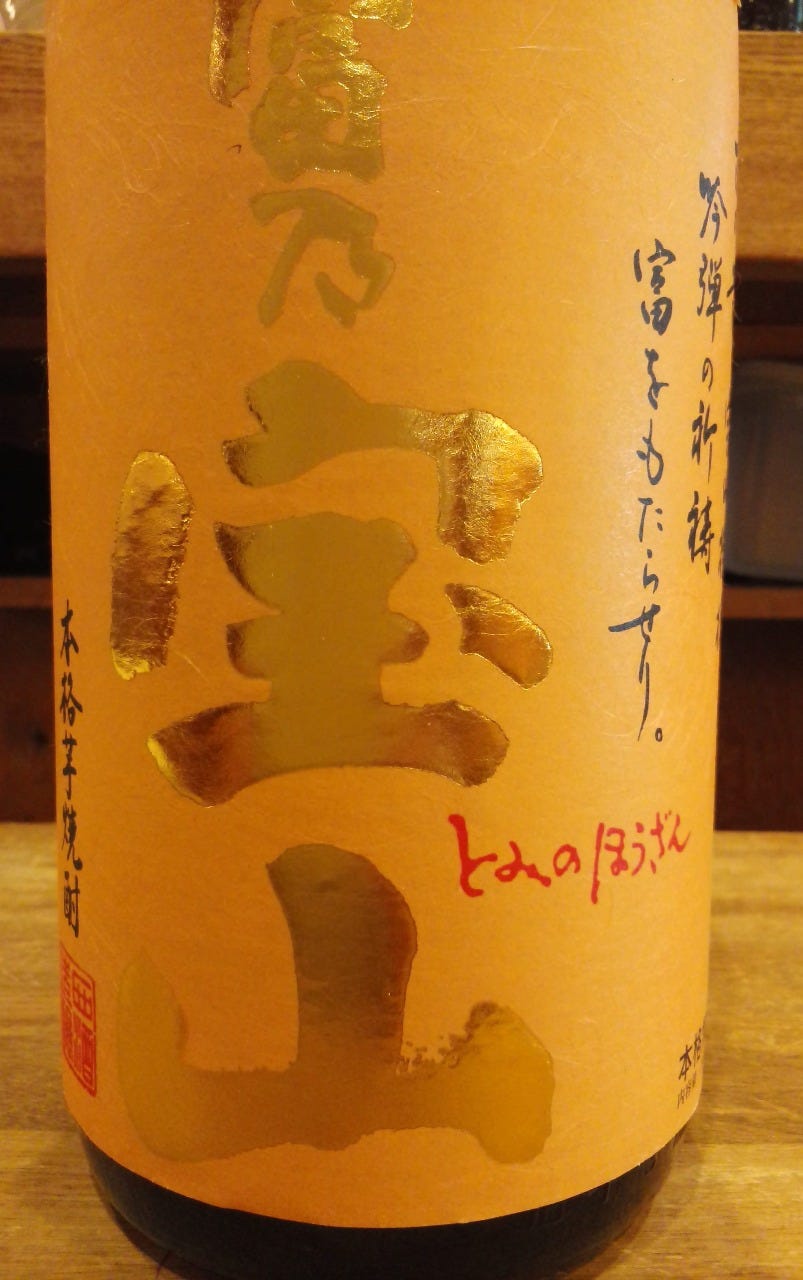 吟弾の祈祷
富をもたらせり。
富乃宝山
とみのほうざん
本格芋焼酎
本格
内容量